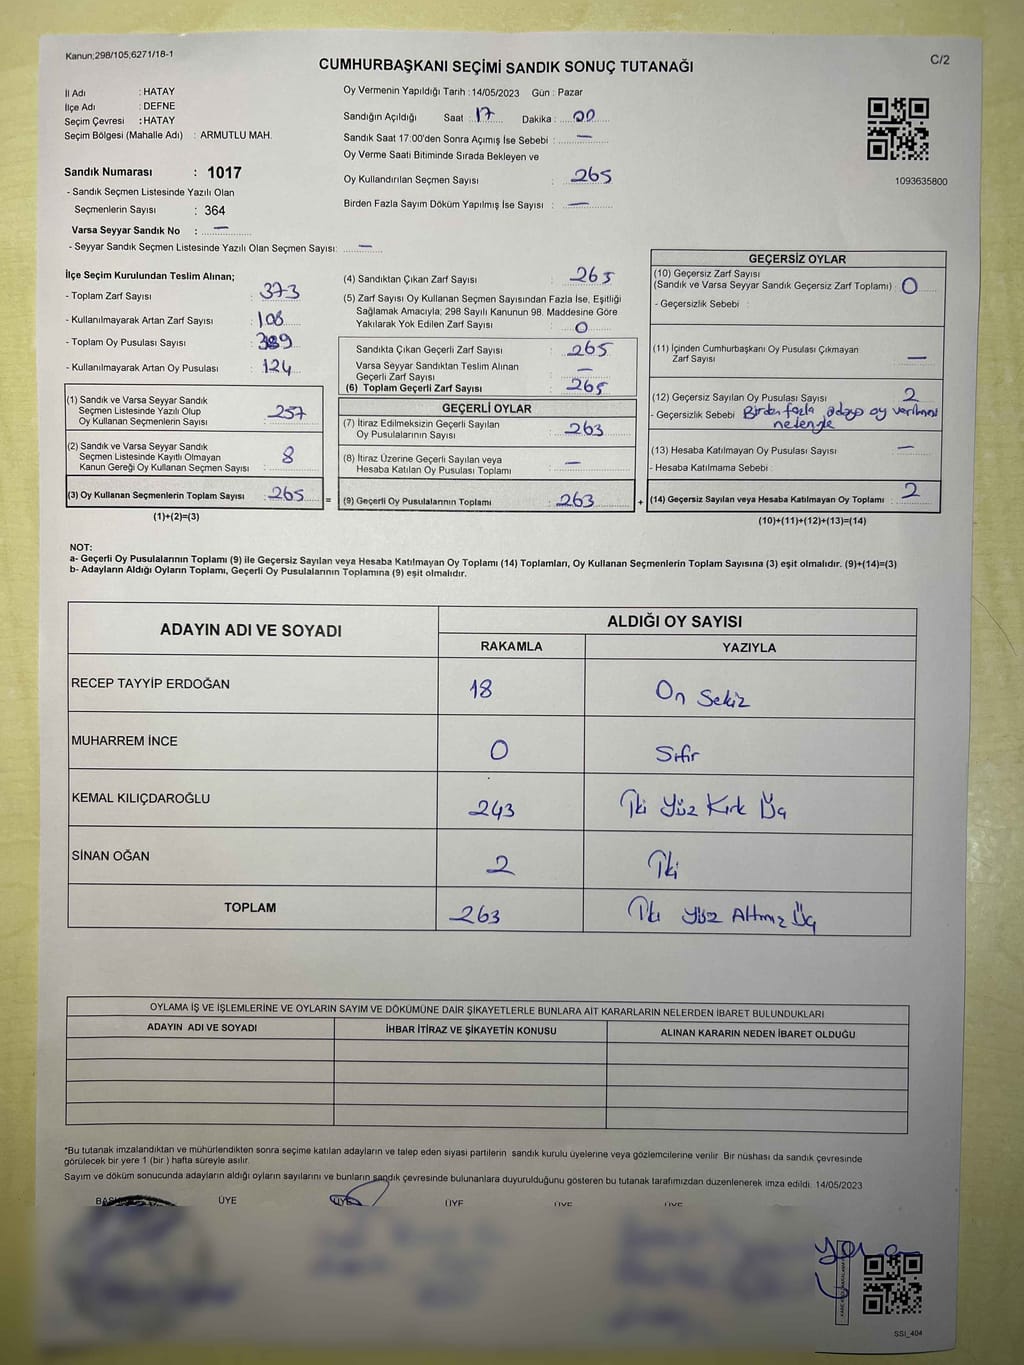 Kanun;298/105,6271/18-1
C/2
CUMHURBAŞKANI SEÇİMİ SANDIK SONUÇ TUTANAĞI
İl Adı : HATAY
İlçe Adı : DEFNE
Seçim Çevresi : HATAY
Seçim Bölgesi (Mahalle Adı) : ARMUTLU MAH.
Oy Vermenin Yapıldığı Tarih : 14/05/2023 Gün : Pazar
Sandığın Açıldığı Saat : 17 Dakika : 00
Sandık Saat 17:00'den Sonra Açımış İse Sebebi : —
Oy Verme Saati Bitiminde Sırada Bekleyen ve
Oy Kullandırılan Seçmen Sayısı : 265
Birden Fazla Sayım Döküm Yapılmış İse Sayısı : —
1093635800
Sandık Numarası : 1017
- Sandık Seçmen Listesinde Yazılı Olan
Seçmenlerin Sayısı : 364
Varsa Seyyar Sandık No : —
- Seyyar Sandık Seçmen Listesinde Yazılı Olan Seçmen Sayısı: —
İlçe Seçim Kurulundan Teslim Alınan;
- Toplam Zarf Sayısı : 373
- Kullanılmayarak Artan Zarf Sayısı : 108
- Toplam Oy Pusulası Sayısı : 389
- Kullanılmayarak Artan Oy Pusulası : 124
(1) Sandık ve Varsa Seyyar Sandık
Seçmen Listesinde Yazılı Olup
Oy Kullanan Seçmenlerin Sayısı : 257
(2) Sandık ve Varsa Seyyar Sandık
Seçmen Listesinde Kayıtlı Olmayan
Kanun Gereği Oy Kullanan Seçmen Sayısı : 8
(3) Oy Kullanan Seçmenlerin Toplam Sayısı : 265 =
(1)+(2)=(3)
(4) Sandıktan Çıkan Zarf Sayısı : 265
(5) Zarf Sayısı Oy Kullanan Seçmen Sayısından Fazla İse, Eşitliği
Sağlamak Amacıyla; 298 Sayılı Kanunun 98. Maddesine Göre
Yakılarak Yok Edilen Zarf Sayısı : 0
Sandıkta Çıkan Geçerli Zarf Sayısı : 265
Varsa Seyyar Sandıktan Teslim Alınan
Geçerli Zarf Sayısı : —
(6) Toplam Geçerli Zarf Sayısı : 265
GEÇERLİ OYLAR
(7) İtiraz Edilmeksizin Geçerli Sayılan
Oy Pusulalarının Sayısı : 263
(8) İtiraz Üzerine Geçerli Sayılan veya
Hesaba Katılan Oy Pusulası Toplamı : —
(9) Geçerli Oy Pusulalarının Toplamı : 263 +
GEÇERSİZ OYLAR
(10) Geçersiz Zarf Sayısı
(Sandık ve Varsa Seyyar Sandık Geçersiz Zarf Toplamı) : 0
- Geçersizlik Sebebi :
(11) İçinden Cumhurbaşkanı Oy Pusulası Çıkmayan
Zarf Sayısı : —
(12) Geçersiz Sayılan Oy Pusulası Sayısı : 2
- Geçersizlik Sebebi : Birden fazla adaya oy verilmesi
nedeniyle
(13) Hesaba Katılmayan Oy Pusulası Sayısı : —
- Hesaba Katılmama Sebebi :
(14) Geçersiz Sayılan veya Hesaba Katılmayan Oy Toplamı : 2
(10)+(11)+(12)+(13)=(14)
NOT:
a- Geçerli Oy Pusulalarının Toplamı (9) ile Geçersiz Sayılan veya Hesaba Katılmayan Oy Toplamı (14) Toplamları, Oy Kullanan Seçmenlerin Toplam Sayısına (3) eşit olmalıdır. (9)+(14)=(3)
b- Adayların Aldığı Oyların Toplamı, Geçerli Oy Pusulalarının Toplamına (9) eşit olmalıdır.
ADAYIN ADI VE SOYADI
ALDIĞI OY SAYISI
RAKAMLA YAZIYLA
RECEP TAYYİP ERDOĞAN 18 On Sekiz
MUHARREM İNCE 0 Sıfır
KEMAL KILIÇDAROĞLU 243 İki Yüz Kırk Üç
SİNAN OĞAN 2 İki
TOPLAM 263 İki Yüz Altmış Üç
OYLAMA İŞ VE İŞLEMLERİNE VE OYLARIN SAYIM VE DÖKÜMÜNE DAİR ŞİKAYETLERLE BUNLARA AİT KARARLARIN NELERDEN İBARET BULUNDUKLARI
ADAYIN ADI VE SOYADI İHBAR İTİRAZ VE ŞİKAYETİN KONUSU ALINAN KARARIN NEDEN İBARET OLDUĞU
*Bu tutanak imzalandıktan ve mühürlendikten sonra seçime katılan adayların ve talep eden siyasi partilerin sandık kurulu üyelerine veya gözlemcilerine verilir. Bir nüshası da sandık çevresinde
görülecek bir yere 1 (bir ) hafta süreyle asılır.
Sayım ve döküm sonucunda adayların aldığı oyların sayılarını ve bunların sandık çevresinde bulunanlara duyurulduğunu gösteren bu tutanak tarafımızdan düzenlenerek imza edildi. 14/05/2023
ÜYE ÜYE ÜYE ÜYE ÜYE
SSI_404